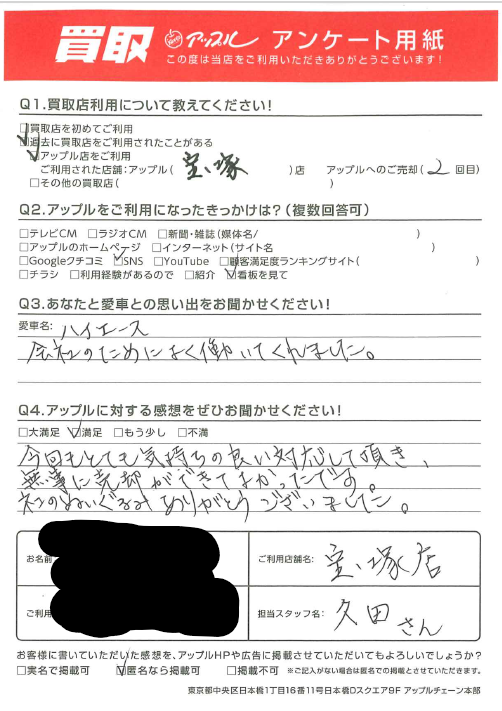 買取 アップル アンケート用紙
この度は当店をご利用いただきありがとうございます!
Q1.買取店利用について教えてください!
☐買取店を初めてご利用
☑過去に買取店をご利用されたことがある
☑アップル店をご利用
ご利用された店舗:アップル( 宝塚 )店 アップルへのご売却( 2 回目)
☐その他の買取店( )
Q2.アップルをご利用になったきっかけは?(複数回答可)
☐テレビCM ☐ラジオCM ☐新聞・雑誌(媒体名/ )
☐アップルのホームページ ☐インターネット(サイト名 )
☐Googleクチコミ ☑SNS ☐YouTube ☐顧客満足度ランキングサイト( )
☐チラシ ☐利用経験があるので ☐紹介 ☑看板を見て
Q3.あなたと愛車との思い出をお聞かせください!
愛車名: ハイエース
会社のためによく働いてくれました。
Q4.アップルに対する感想をぜひお聞かせください!
☐大満足 ☑満足 ☐もう少し ☐不満
今回もとても気持ちの良い対応して頂き、
無事に売却ができてよかったです。
ネコのぬいぐるみありがとうございました。
お名前
ご利用店舗名: 宝塚店
ご利用
担当スタッフ名: 久田さん
お客様に書いていただいた感想を、アップルHPや広告に掲載させていただいてもよろしいでしょうか?
☐実名で掲載可 ☑匿名なら掲載可 ☐掲載不可 ※ご記入がない場合は匿名での掲載とさせていただきます。
東京都中央区日本橋1丁目16番11号日本橋Dスクエア9F アップルチェーン本部